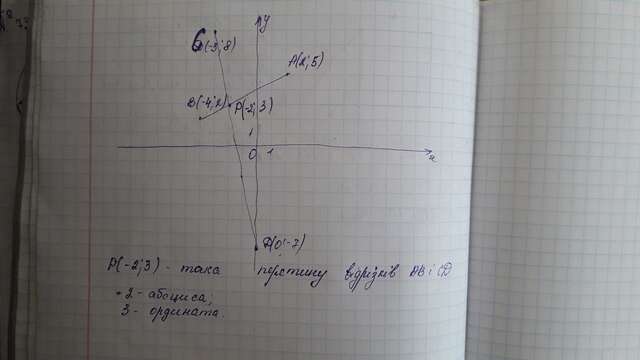 у
(-3; 8)
A(2; 5)
B(-4; 2)
P(-2; 3)
1
0 1
x
(0; -7)
P(-2; 3) - така перетину відрізків AB і CD
-2 - абсциса;
3 - ордината.